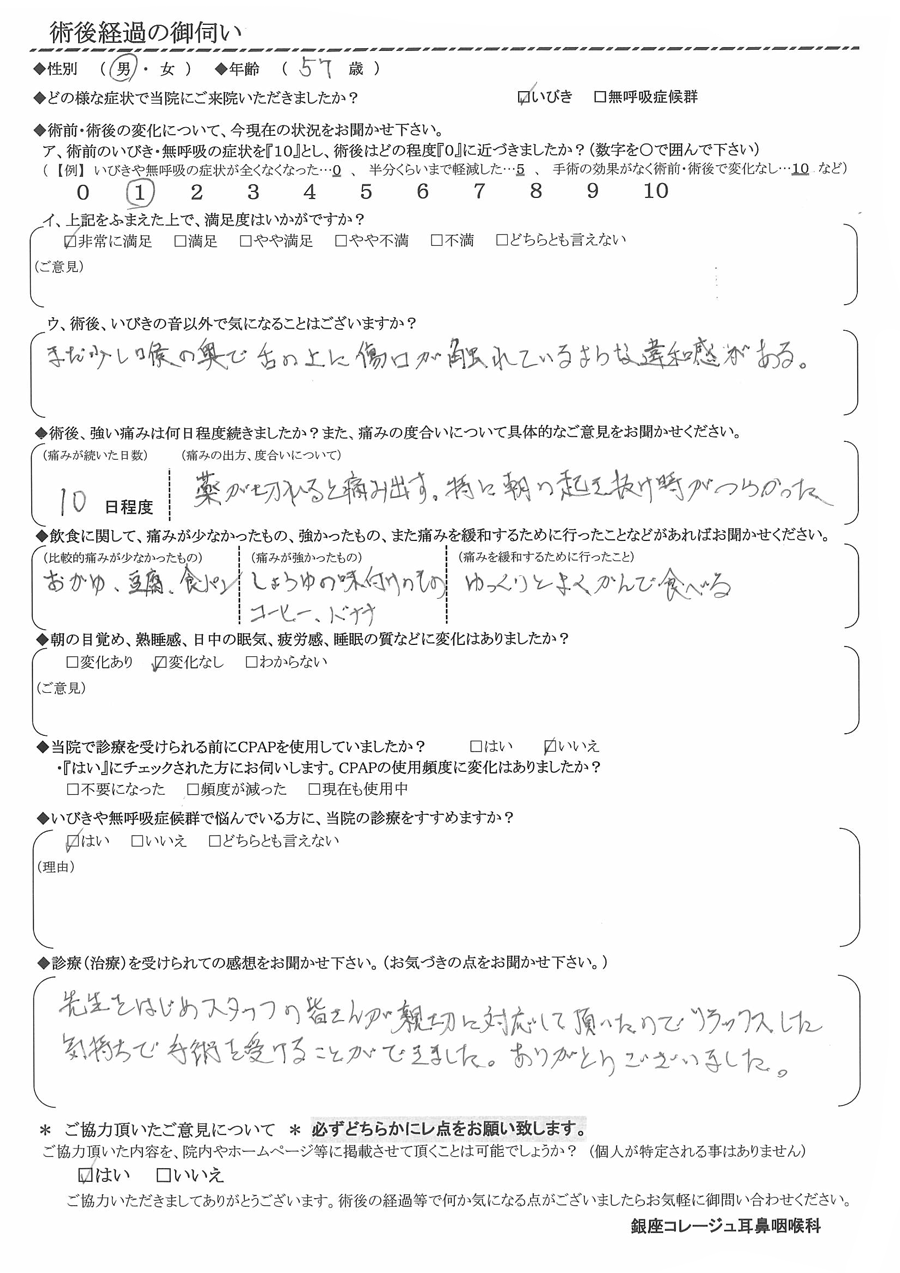 術後経過の御伺い
◆性別 (男・女) ◆年齢 (57歳)
◆どの様な症状で当院にご来院いただきましたか? ☑いびき □無呼吸症候群
◆術前・術後の変化について、今現在の状況をお聞かせ下さい。
ア、術前のいびき・無呼吸の症状を『10』とし、術後はどの程度『0』に近づきましたか?(数字を○で囲んで下さい)
(【例】いびきや無呼吸の症状が全くなくなった…0 、 半分くらいまで軽減した…5 、 手術の効果がなく術前・術後で変化なし…10 など)
0 1 2 3 4 5 6 7 8 9 10
イ、上記をふまえた上で、満足度はいかがですか?
☑非常に満足 □満足 □やや満足 □やや不満 □不満 □どちらとも言えない
(ご意見)
ウ、術後、いびきの音以外で気になることはございますか?
まだ少し喉の奥で舌の上に傷口が触れているような違和感がある。
◆術後、強い痛みは何日程度続きましたか?また、痛みの度合いについて具体的なご意見をお聞かせください。
(痛みが続いた日数) (痛みの出方、度合いについて)
10 日程度 薬が切れると痛み出す。特に朝の起き抜け時がつらかった
◆飲食に関して、痛みが少なかったもの、強かったもの、また痛みを緩和するために行ったことなどがあればお聞かせください。
(比較的痛みが少なかったもの) (痛みが強かったもの) (痛みを緩和するために行ったこと)
おかゆ、豆腐、食パン しょうゆの味付けのもの ゆっくりとよくかんで食べる
コーヒー、バナナ
◆朝の目覚め、熟睡感、日中の眠気、疲労感、睡眠の質などに変化はありましたか?
□変化あり ☑変化なし □わからない
(ご意見)
◆当院で診療を受けられる前にCPAPを使用していましたか? □はい ☑いいえ
・『はい』にチェックされた方にお伺いします。CPAPの使用頻度に変化はありましたか?
□不要になった □頻度が減った □現在も使用中
◆いびきや無呼吸症候群で悩んでいる方に、当院の診療をすすめますか?
☑はい □いいえ □どちらとも言えない
(理由)
◆診療(治療)を受けられての感想をお聞かせ下さい。(お気づきの点をお聞かせ下さい。)
先生をはじめスタッフの皆さんが親切に対応して頂いたのでリラックスした
気持ちで手術を受けることができました。ありがとうございました。
＊ ご協力頂いたご意見について ＊ 必ずどちらかにレ点をお願い致します。
ご協力頂いた内容を、院内やホームページ等に掲載させて頂くことは可能でしょうか? (個人が特定される事はありません)
☑はい □いいえ
ご協力いただきましてありがとうございます。術後の経過等で何か気になる点がございましたらお気軽に御問い合わせください。
銀座コレージュ耳鼻咽喉科